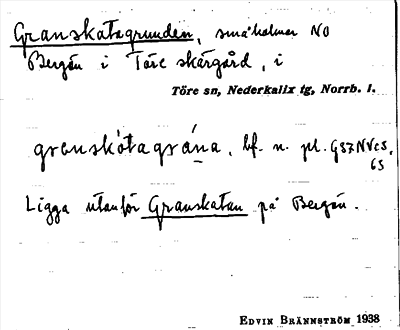 Granskatagrunden, småholmar NO
Bergön i Töre skärgård, i
Töre sn, Nederkalix tg, Norrb. l.
granskåtagrána, bf. n. pl.
Ligga utanför Granskatan på Bergön.
EDVIN BRÄNNSTRÖM 1938